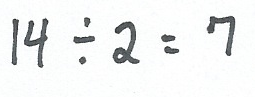 14 ÷ 2 = 7